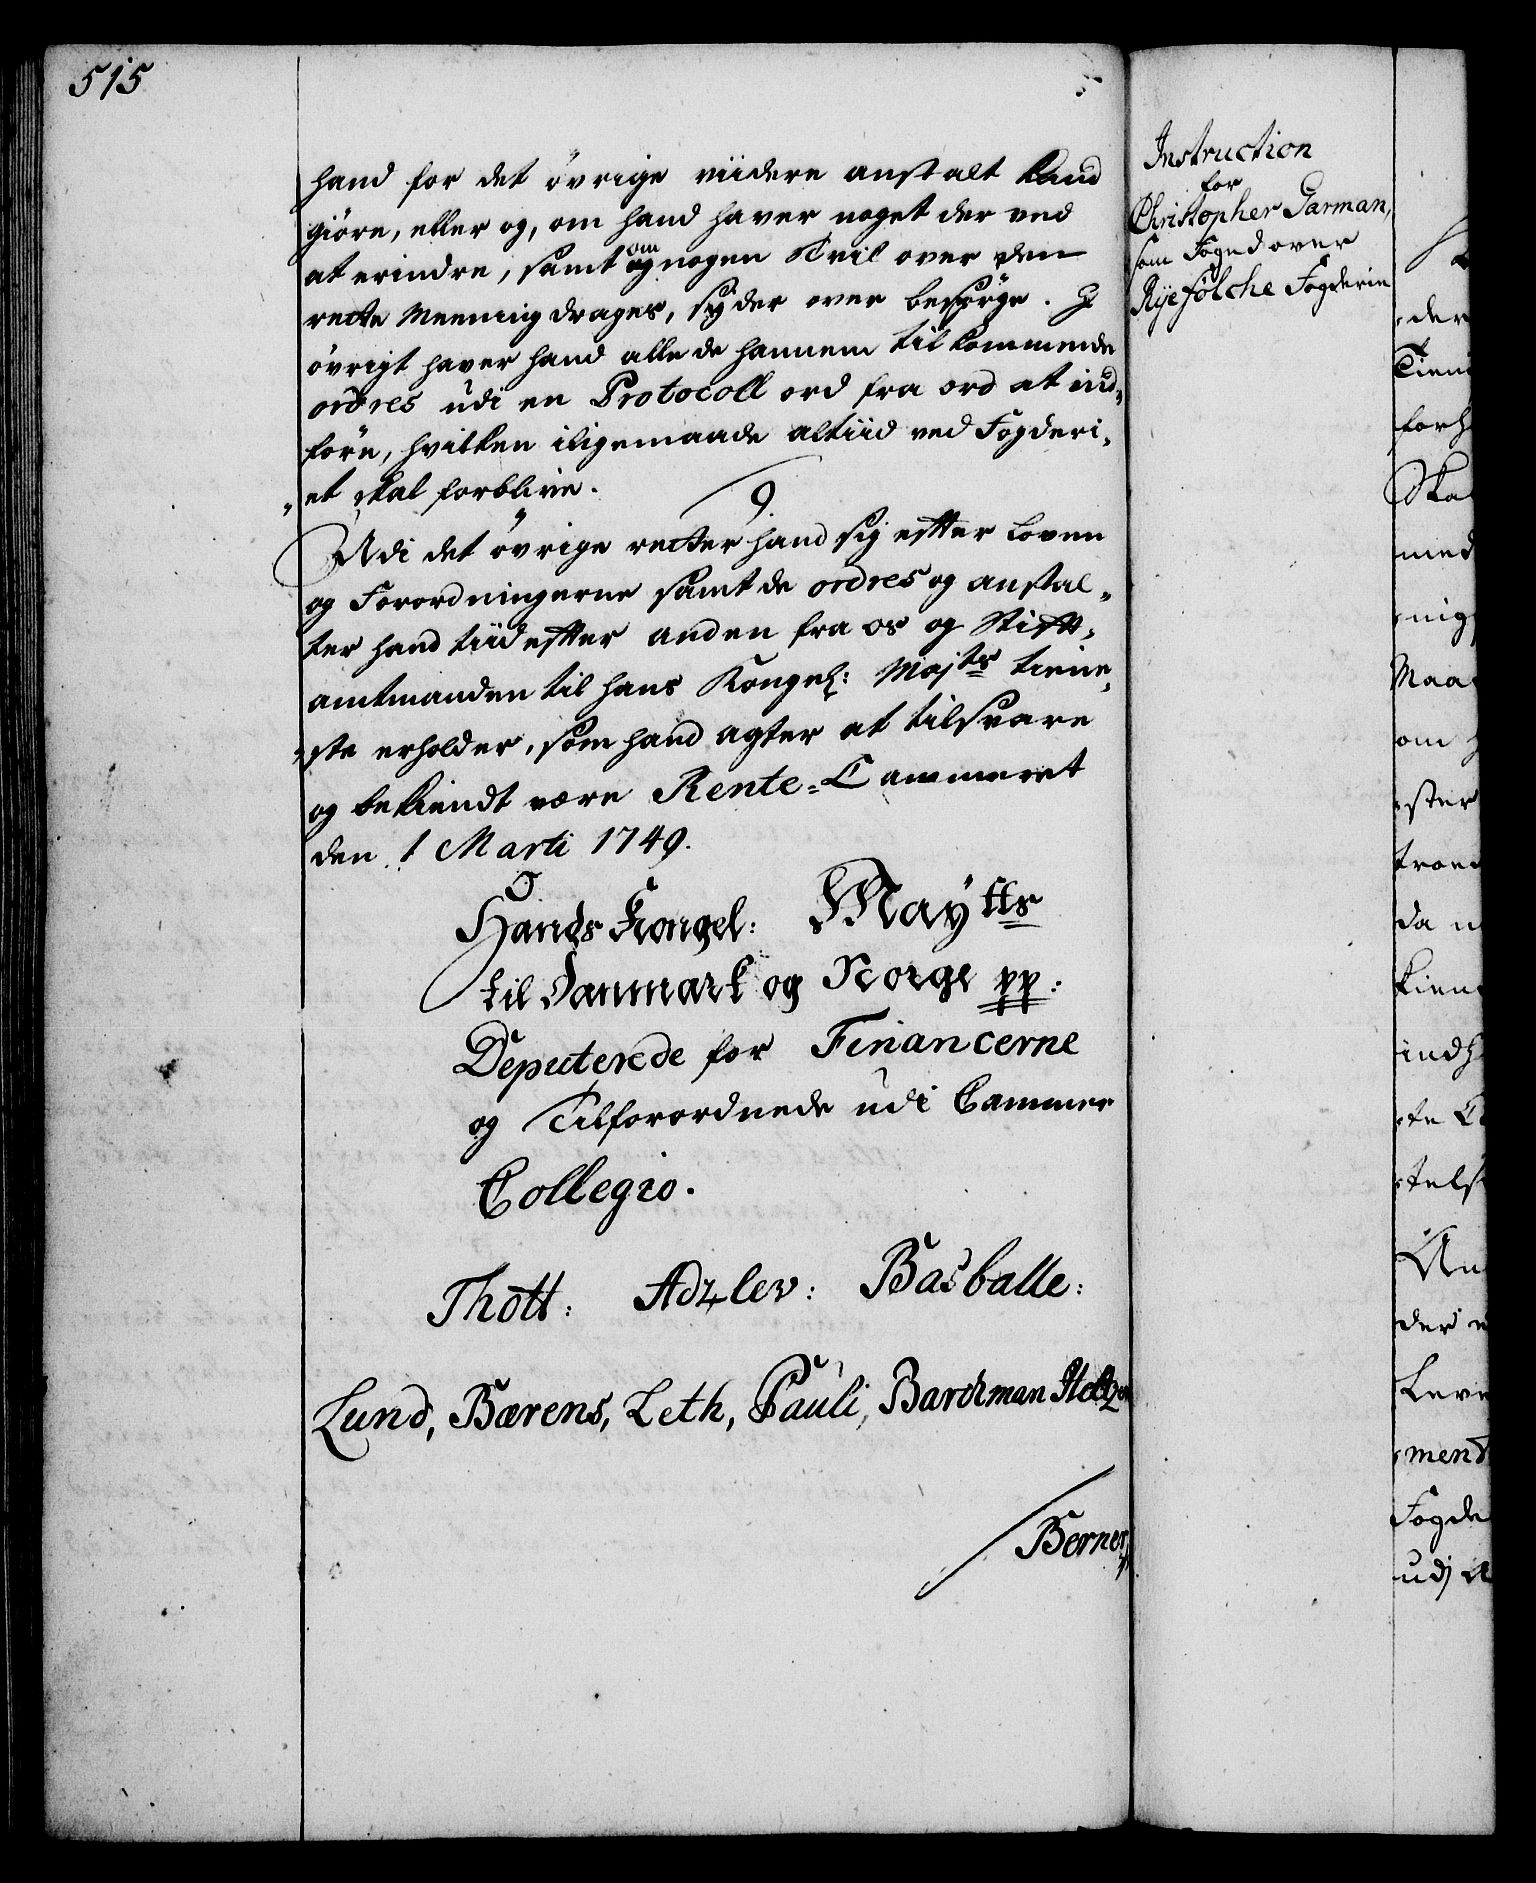 515
hand for det övrige viidere anstalt kand
giöre, eller og, om hand haver noget der ved
at erindre, samt om nogen Tvil over den
rette Meening drages, sig der over besørge. I
övrigt haver hand alle de hannem tilkommende
ordres udi en Protocoll ord fra ord at ind„
före, hvilken iligemaade altiid ved Fogderi„
„et skal forblive.
9.
Udi det övrige retter hand sig effter Loven
og Forordningerne samt de ordres og anstal„
ter hand tiid effter anden fra os og Stifft„
amtmanden til hans Kongel: Majts tiene„
„ste erholder, som hand agter at tilsvare
og bekiendt være Rente-Cammeret
den 1 Marti 1749.
Hands Kongel: Maÿtts
til Danmark og Norge pp:
Deputerede for Financerne
og Tilforordnede udi Cammer
Collegio.
Thott: Adzlev: Basballe:
Lund, Bærens, Leth, Pauli, Barchman
Berner
Instruction
for
Christopher Garman,
som Foged over
Ryefölche Fogderie
der
Tien
forh
Ska
med
nig
Maa
om h
ster
troe
da
kien
indh
te
tels
der
Leve
ment
Fogde
udj